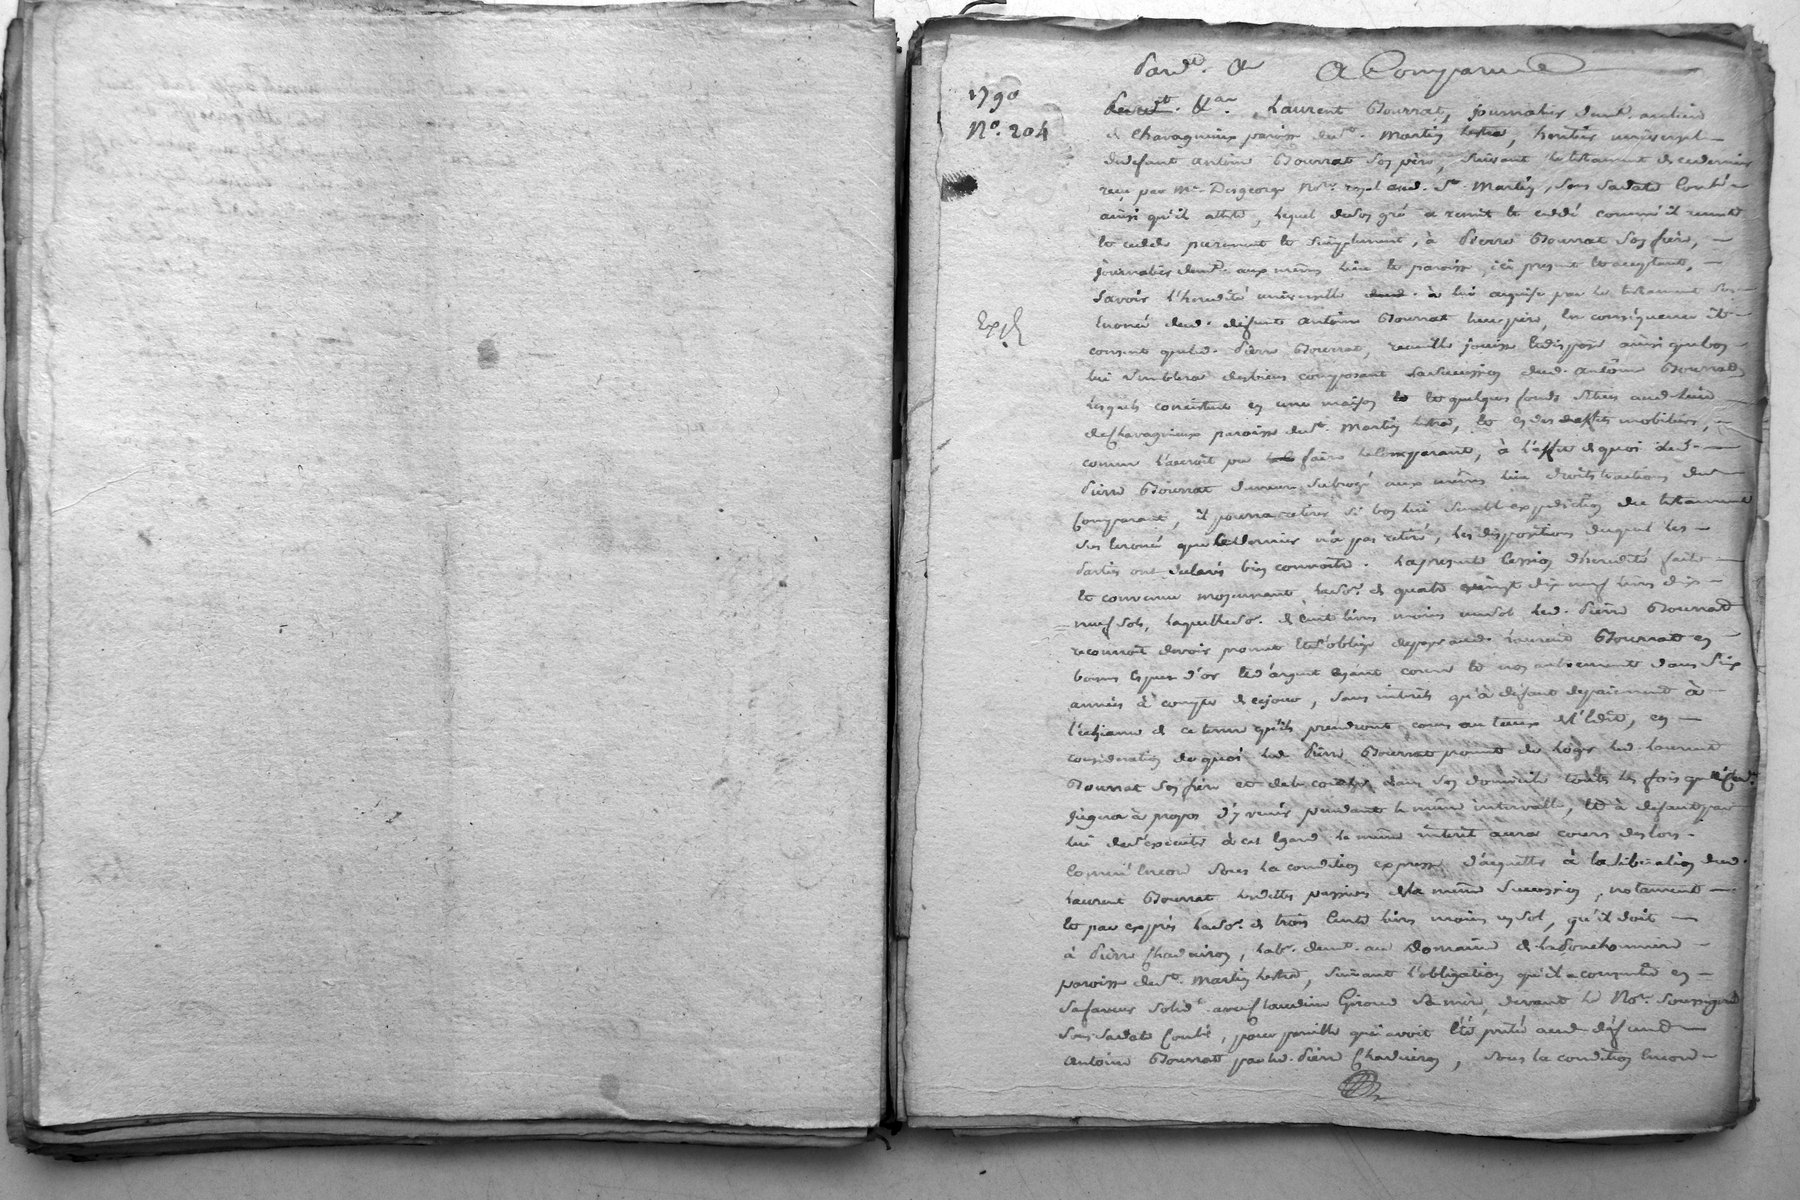 Pard.t &a A Comparu
1790
N.o 204
Laurent Bourrat, journalier dem.t au lieu
de Chavagnieux paroisse de St. Martin Lestra, heritier universel
du defunt antoine Bourrat son père, suivant le testament de ce dernier
reçu par Me Desgeorge No.re royal aud. St. Martin, sous sa date Contr.é
ainsi qu'il atteste, lequel de son gré a remit et cedé comme il remet
et cede purement et simplement, à Pierre Bourrat son frère,
journalier dem.t aux mêmes lieu et paroisse ici present et acceptant,
Savoir l'heredité universelle à lui acquise par le testament sus
enoncé dud. defunt antoine Bourrat leur père, En consequence il
consent que led. Pierre Bourrat, recueille jouisse et dispose ainsi que bon
lui semblera des biens composant la succession dud. antoine Bourrat
Lesquels consistent en une maison et quelques fonds situés aud. lieu
de Chavagnieux paroisse de St. Martin Lestra, et en des effets mobiliers,
comme l'auroit pu faire le Comparant, à l'effet de quoi led.
Pierre Bourrat demeure subrogé aux mêmes lieu droits et actions du
Comparant, il pourra retirer si bon lui semble expedition du testament
sus enoncé que ce dernier n'a pas retiré, les dispositions duquel les
Parties ont declaré bien connoitre. La presente Cession d'heredité faite
et convenue moyennant la So.e de quatre vingt dix neuf livres dix
neuf sols, laquelle So.e de Cent livres moins un sol led. Pierre Bourrat
reconnoit devoir promet et s'oblige de payer aud. Laurent Bourrat en
bonnes Especes d'or et d'argent ayant cours et non autrement dans six
années à compter de ce jour, sans interêts qu'à defaut de paiement à
l'echeance de ce terme qu'ils prendront cours au taux de l'Edit, en
consideration de quoi led. Pierre Bourrat promet de loger led. Laurent
Bourrat son frère et de le coucher dans son domicile toutes les fois que
jugera à propos d'y venir pendant le même intervalle, et à defaut par
lui de s'executer à cet Egard le même interêt aura cours des lors.
Convenu Encore sous la condition expresse d'acquitter à la liberation dud.
Laurent Bourrat les dettes passives de la même Succession, notament
et par exprès la So.e de trois Cents livres moins un sol, qu'il doit
à Pierre Chadeiron, lab.r dem.t au Domaine de
paroisse de St. Martin Lestra, suivant l'obligation qu'il a consentie en
sa faveur solid.t avec Claudine Giroud sa mère, devant le No.re soussigné
sous sa date Contr.é, pour pareille qui avoit Eté prêté aud. defunt
antoine Bourrat par led. Pierre Chadeiron, sous la condition Encore
Exp.é